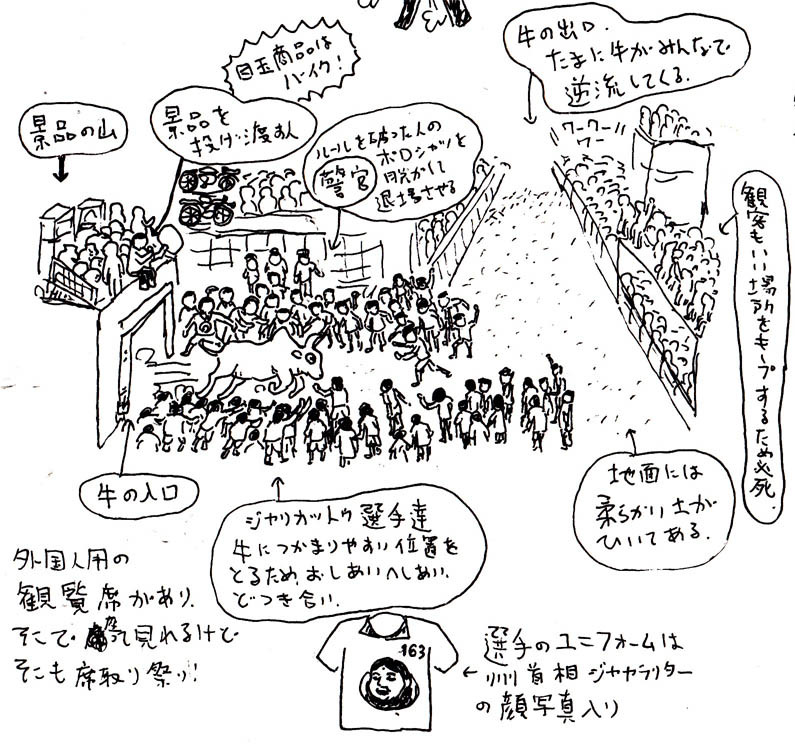 目玉商品は
バイク!
牛の出口.
たまに牛がみんなで
逆流してくる.
景品の山
景品を
投げ渡す人
ルールを破った人の
ポロシャツを
脱がして
退場させる
警官
ワーワー//
ワー
観客もいい場所をキープするため必死.
牛の入口
ジャリカットゥ選手達
牛につかまりやすい位置を
とるため、おしあいへしあい、
どつき合い.
地面には
柔らかい土が
ひいてある.
外国人用の
観覧席があり、
そこで座って見れるけど
そこも席取り祭り!
163
選手のユニフォームは
州首相ジャヤラリター
の顔写真入り